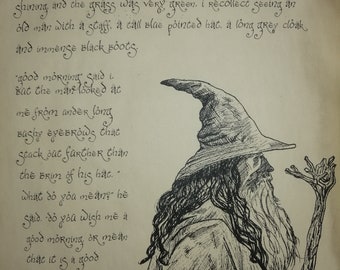 shining and the grass was very green. i recollect seeing an
old man with a staff, a tall blue pointed hat, a long grey cloak,
and immense black boots.
"good morning" said i
but the man looked at
me from under long
bushy eyebrows that
stuck out further than
the brim of his hat. "
what do you mean?" he
said. do you wish me a
good morning, or mean
that it is a good